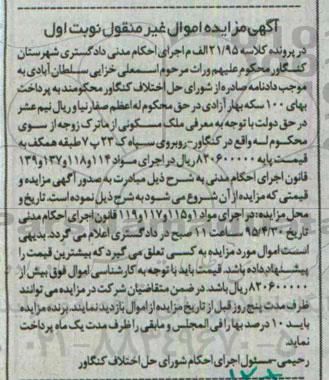 آگهی مزایده اموال غیر منقول نوبت اول
در پرونده کلاسه ۲۱/۹۵ الف م اجرای احکام مدنی دادگستری شهرستان
کنگاور محکوم علیهم وراث مرحوم اسمعلی خزایی سلطان آبادی به
موجب دادنامه صادره از شورای حل اختلاف کنگاور محکومند به پرداخت
بهای ۱۰۰ سکه بهار آزادی در حق محکوم له اعظم صفارنیا و ریال نیم عشر
در حق دولت با توجه به معرفی ملک مسکونی از ماترک زوجه از سوی
محکوم له واقع در کنگاور-روبروی سپاه ک ۲۳ پ ۷ طبقه همکف به
قیمت پایه ۸۳۰۶۰۰۰۰۰ ریال در اجرای مواد ۱۱۴ و ۱۱۸ و ۱۳۷ و ۱۳۹
قانون اجرای احکام مدنی به شرح ذیل مبادرت به صدور آگهی مزایده و
قیمتی که مزایده از آن شروع می شود به شرح ذیل نموده است. تاریخ و
محل مزایده: در اجرای مواد ۱ و ۱۱۵ و ۱۱۷ و ۱۱۹ قانون اجرای احکام مدنی
تاریخ ۹۵/۴/۳۰ ساعت ۱۱ صبح در دادگستری اعلام می گردد بدیهی
است اموال مورد مزایده به کسی تعلق می گیرد که بیشترین قیمت را
پیشنهاد داده باشد. قیمت باید با توجه به کارشناسی اموال فوق بیش از
۸۳۰۶۰۰۰۰۰ ریال باشد. در ضمن متقاضیان شرکت در مزایده می توانند
ظرف مدت پنج روز قبل از تاریخ مزایده از اموال بازدید نمایند. برنده مزایده
باید ۱۰ درصد بها را فی المجلس و مابقی را ظرف مدت یک ماه پرداخت
نماید.
رحیمی-مسئول اجرای احکام شورای حل اختلاف کنگاور